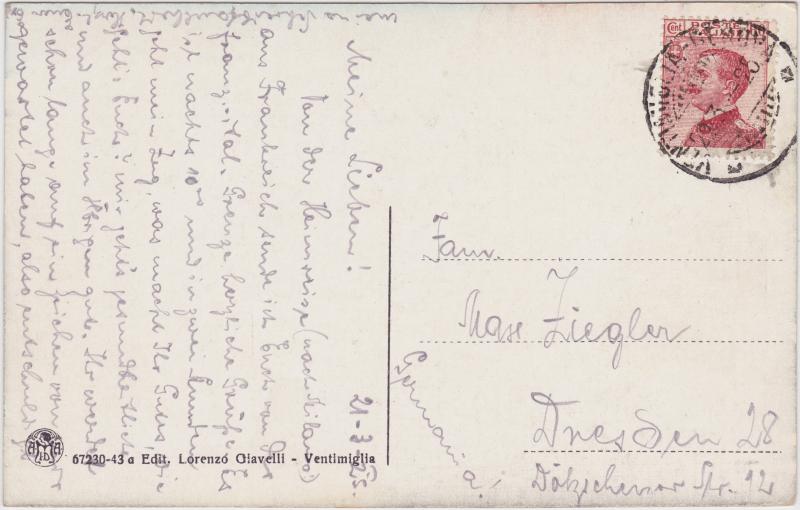 21-3-25.
Meine Lieben!
Von der Heimreise (nach Milano)
aus Frankreich sende ich Euch von der
Franz.-ital. Grenze herzliche Grüße. Es
ist nachts 10 und in zwei Stunden
geht mein Zug, was macht Ihr Gutes, wie
geht's Euch? mir geht's gesundheitlich
und auch im Übrigen gut. Ihr werdet
schon lange auf ein Zeichen von mir
gewartet haben, also entschuldigt
meine
Fam.
Max Ziegler
Dresden 28
Dölzschener Str. 92
Germania!
67230-43 a Edit. Lorenzo Giavelli - Ventimiglia
POSTE
Cent
VENTIMIGLIA-GENOVA